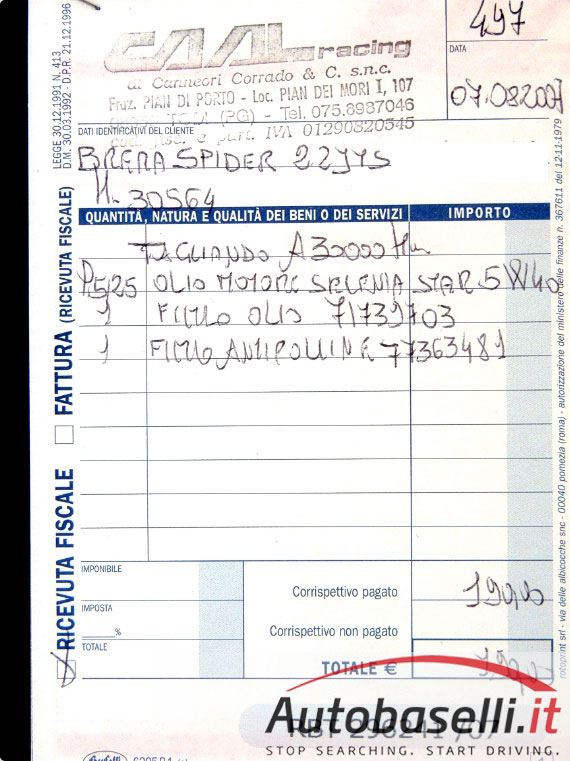 497
DATA
07.08.2007
CAAL racing
di Canneori Corrado & C. s.n.c.
Fraz. PIAN DI PORTO - Loc. PIAN DEI MORI I, 107
TODI (PG) - Tel. 075.8987046
part. IVA 01290820545
LEGGE 30.12.1991 N. 413
D.M. 30.03.1992 - D.P.R. 21.12.1996
DATI IDENTIFICATIVI DEL CLIENTE
BRERA SPIDER 22JTS
30564
QUANTITÀ, NATURA E QUALITÀ DEI BENI O DEI SERVIZI
IMPORTO
TAGLIANDO A 30000 Km
5,25 OLIO MOTORE SELENIA STAR 5W40
1 FILTRO OLIO 71739703
1 FILTRO ANTIPOLLINE 77363481
FATTURA (RICEVUTA FISCALE)
RICEVUTA FISCALE
IMPONIBILE
IMPOSTA
%
TOTALE
Corrispettivo pagato
Corrispettivo non pagato
TOTALE €
rotoprint srl - via delle albicocche snc - 00040 pomezia (roma) - autorizzazione del ministero delle finanze n. 367611 del 12-11-1979
Autobaselli.it
STOP SEARCHING. START DRIVING.
Buffetti